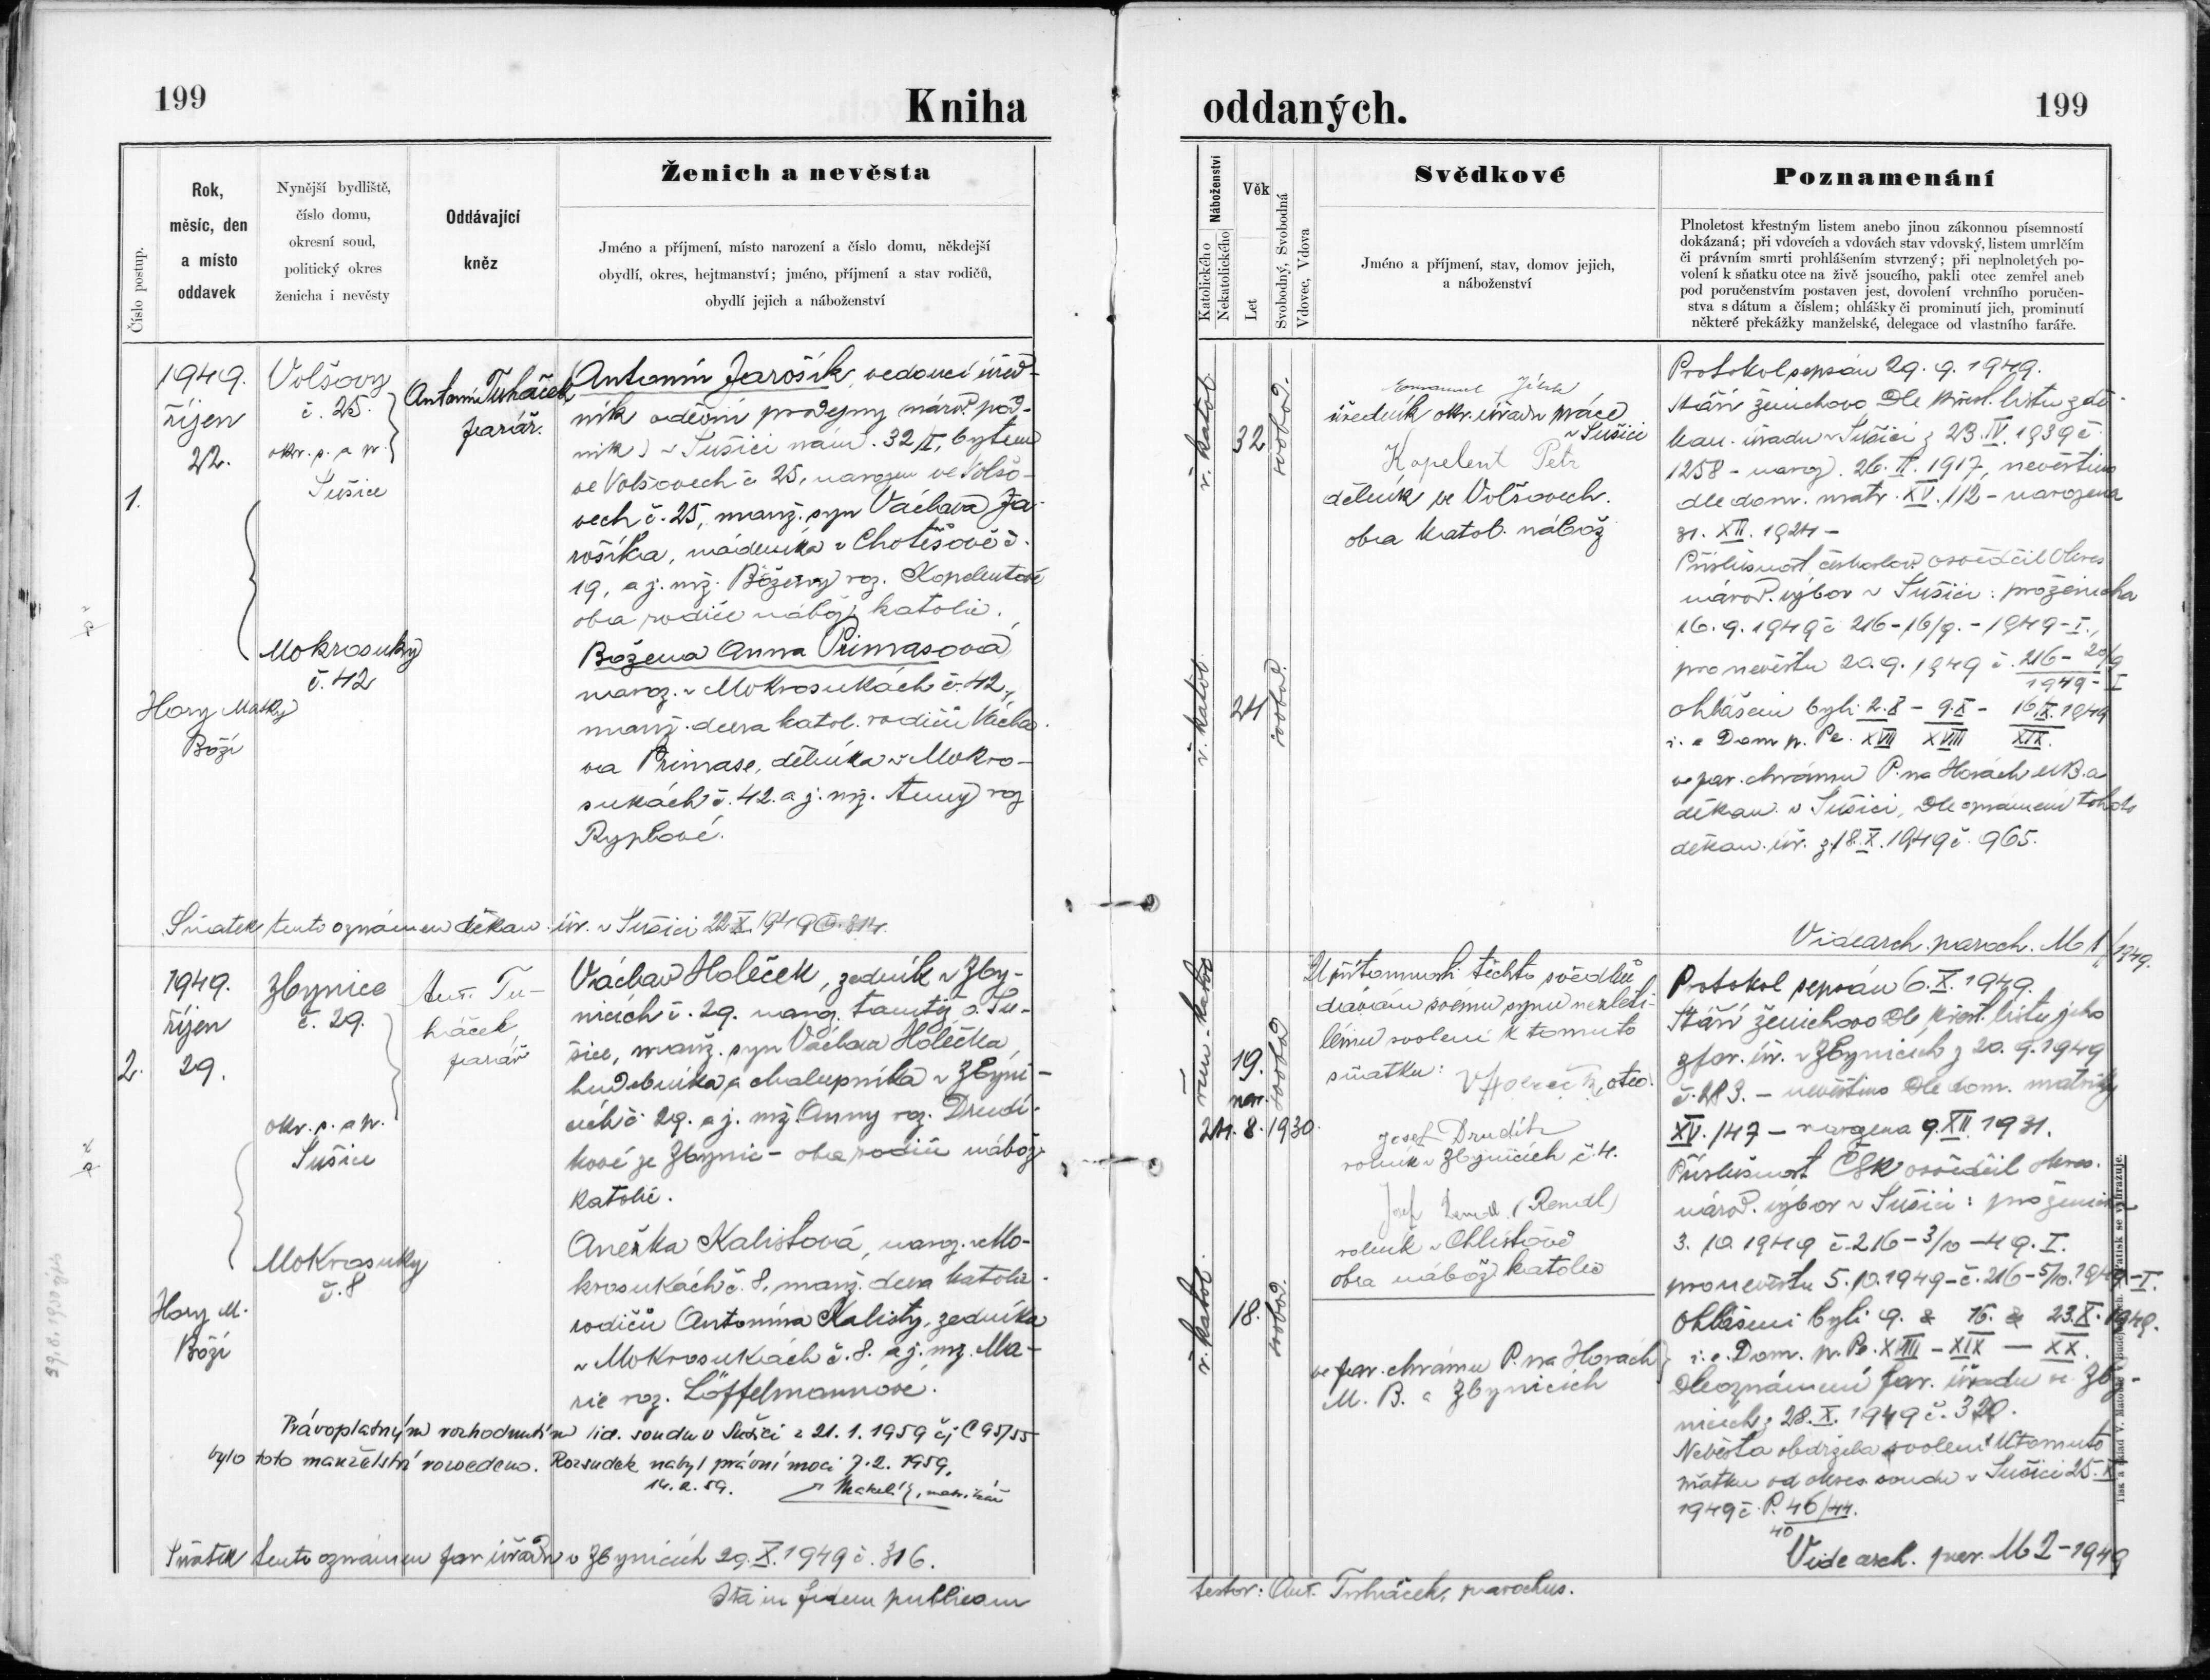 199
Kniha
Číslo postup.
Rok,
měsíc, den
a místo
oddavek
Nynější bydliště,
číslo domu,
okresní soud,
politický okres
ženicha i nevěsty
Oddávající
kněz
Ženich a nevěsta
Jméno a příjmení, místo narození a číslo domu, někdejší
obydlí, okres, hejtmanství; jméno, příjmení a stav rodičů,
obydlí jejich a náboženství
1.
1949.
říjen
22.
Hory Matky
Boží
Volšovy
č. 25.
okr. s. a p.
Sušice
Mokrosuky
č. 42
Antonín Tuháček
farář.
Antonín Jarošík, vedoucí úřed-
ník oděvní prodejny národ. pod-
nik) v Sušici nám. 32/II, bytem
ve Volšovech č 25, narozen ve Volšo-
vech č. 25, manž. syn Václava Ja-
rošíka, nádeníka v Chotěšově č.
19, a j. mž. Boženy roz. Kopelentové
oba rodiče nábož. katolic.
Božena Anna Primasová
naroz. v Mokrosukách č. 42,
manž. dcera katol. rodičů Václa-
va Primase, dělníka v Mokro-
sukách č. 42. a j. mž. Anny roz
Ryplové.
Sňatek tento oznámen děkan. úř. v Sušici 22.X.1949 č. 314.
2.
1949.
říjen
29.
Hory M.
Boží
Zbynice
č. 29.
okr. s. a p.
Sušice
Mokrosuky
č. 8
Ant. Tu-
háček
farář
Václav Holeček, zedník v Zby-
nicích č. 29. naroz. tamtéž o. Su-
šice, manž. syn Václava Holečka
hudebníka a chalupníka v Zbyni-
cích č. 29. a j. mž Anny roz. Drudí-
kové ze Zbynic - oba rodiče nábož.
katolic.
Anežka Kalistová, naroz. v Mo-
krosukách č. 8, manž. dcera katolic.
rodičů Antonína Kalisty, zedníka
v Mokrosukách č. 8. a j. mž. Ma-
rie roz. Löffelmannové.
Právoplatným rozhodnutím lid. soudu v Sušici z 21. 1. 1959 čj C 95/55
bylo toto manželství rozvedeno. Rozsudek nabyl právní moci 7. 2. 1959.
14. 2. 59.
Sňatek tento oznámen far. úřadu v Zbynicích 29.X.1949 č. 316.
Ita in fidem publicam
oddaných.
199
Náboženství
Katolického
Nekatolického
Věk
Let
Svobodný, Svobodná
Vdovec, Vdova
Svědkové
Jméno a příjmení, stav, domov jejich,
a náboženství
Poznamenání
Plnoletost křestným listem anebo jinou zákonnou písemností
dokázaná; při vdovcích a vdovách stav vdovský, listem umrlčím
či právním smrti prohlášením stvrzený; při neplnoletých po-
volení k sňatku otce na živě jsoucího, pakli otec zemřel aneb
pod poručenstvím postaven jest, dovolení vrchního poručen-
stva s dátum a číslem; ohlášky či prominutí jich, prominutí
některé překážky manželské, delegace od vlastního faráře.
ř. katol.
32
svobod.
ř. katol.
24
svobod.
Emanuel
úředník okr. úřadu práce
v Sušici
Kopelent Petr
dělník ve Volšovech.
oba katol. nábož
Protokol sepsán 29. 9. 1949.
Stáří ženichovo dle křest. listu z dě-
kan. úřadu v Sušici z 23.IV.1939 č
1258 - naroz. 26. II. 1917, nevěstino
dle dom. matr. XV. 112 - narozena
31. XII. 1924 -
Příslušnost českoslov. osvědčil Okres.
národ. výbor v Sušici: pro ženicha
16. 9. 1949 č 216-16/9. - 1949-I.,
pro nevěstu 20. 9. 1949 č. 216-20/9
1949-I
Ohlášeni byli 2.X - 9.X - 16/X.1949
i. e Dom p. Pe. XVII XVIII XIX.
ve far. chrámu P. na Horách M B. a
děkan. v Sušici, dle oznámení tohoto
děkan. úř. z 18.X.1949 č. 965.
Vide arch. paroch. M 1/1949.
řím. katol
19.
nar.
24. 8. 1930.
svobod
ř. katol.
18.
svobod.
V přítomnosti těchto svědků
dávám svému synu nezleti-
lému svolení k tomuto
sňatku: V Holeček, otec.
Josef Drudík
rolník v Zbynicích č. 4.
Josef Rendl (Rendl)
rolník v Chlístově
oba nábož. katolic
ve far. chrámu P. na Horách
M. B. a Zbynicích
Protokol sepsán 6.X.1949.
Stáří ženichovo dle křest. listu jeho
z far. úř. v Zbynicích z 20. 9. 1949
č. 283. - nevěstino dle dom. matriky
XV. 147 - narozena 9.XII 1931.
Příslušnost ČSR osvědčil okres.
národ. výbor v Sušici: pro ženicha
3. 10. 1949 č. 216-3/10-49. I.
pro nevěstu 5.10.1949-č. 216-5/10.1949-I.
Ohlášeni byli 9. & 16. & 23.X.1949.
i. e. Dom. p. Pe. XVIII - XIX - XX.
dle oznámení far. úřadu ve Zby-
nicích z 28.X.1949 č. 320.
Nevěsta obdržela svolení k tomuto
sňatku od okres. soudu v Sušici 25.X
1949 č. P. 46/44.
40
Vide arch. par. M 2-1949
testor: Ant. Tuháček, parochus.